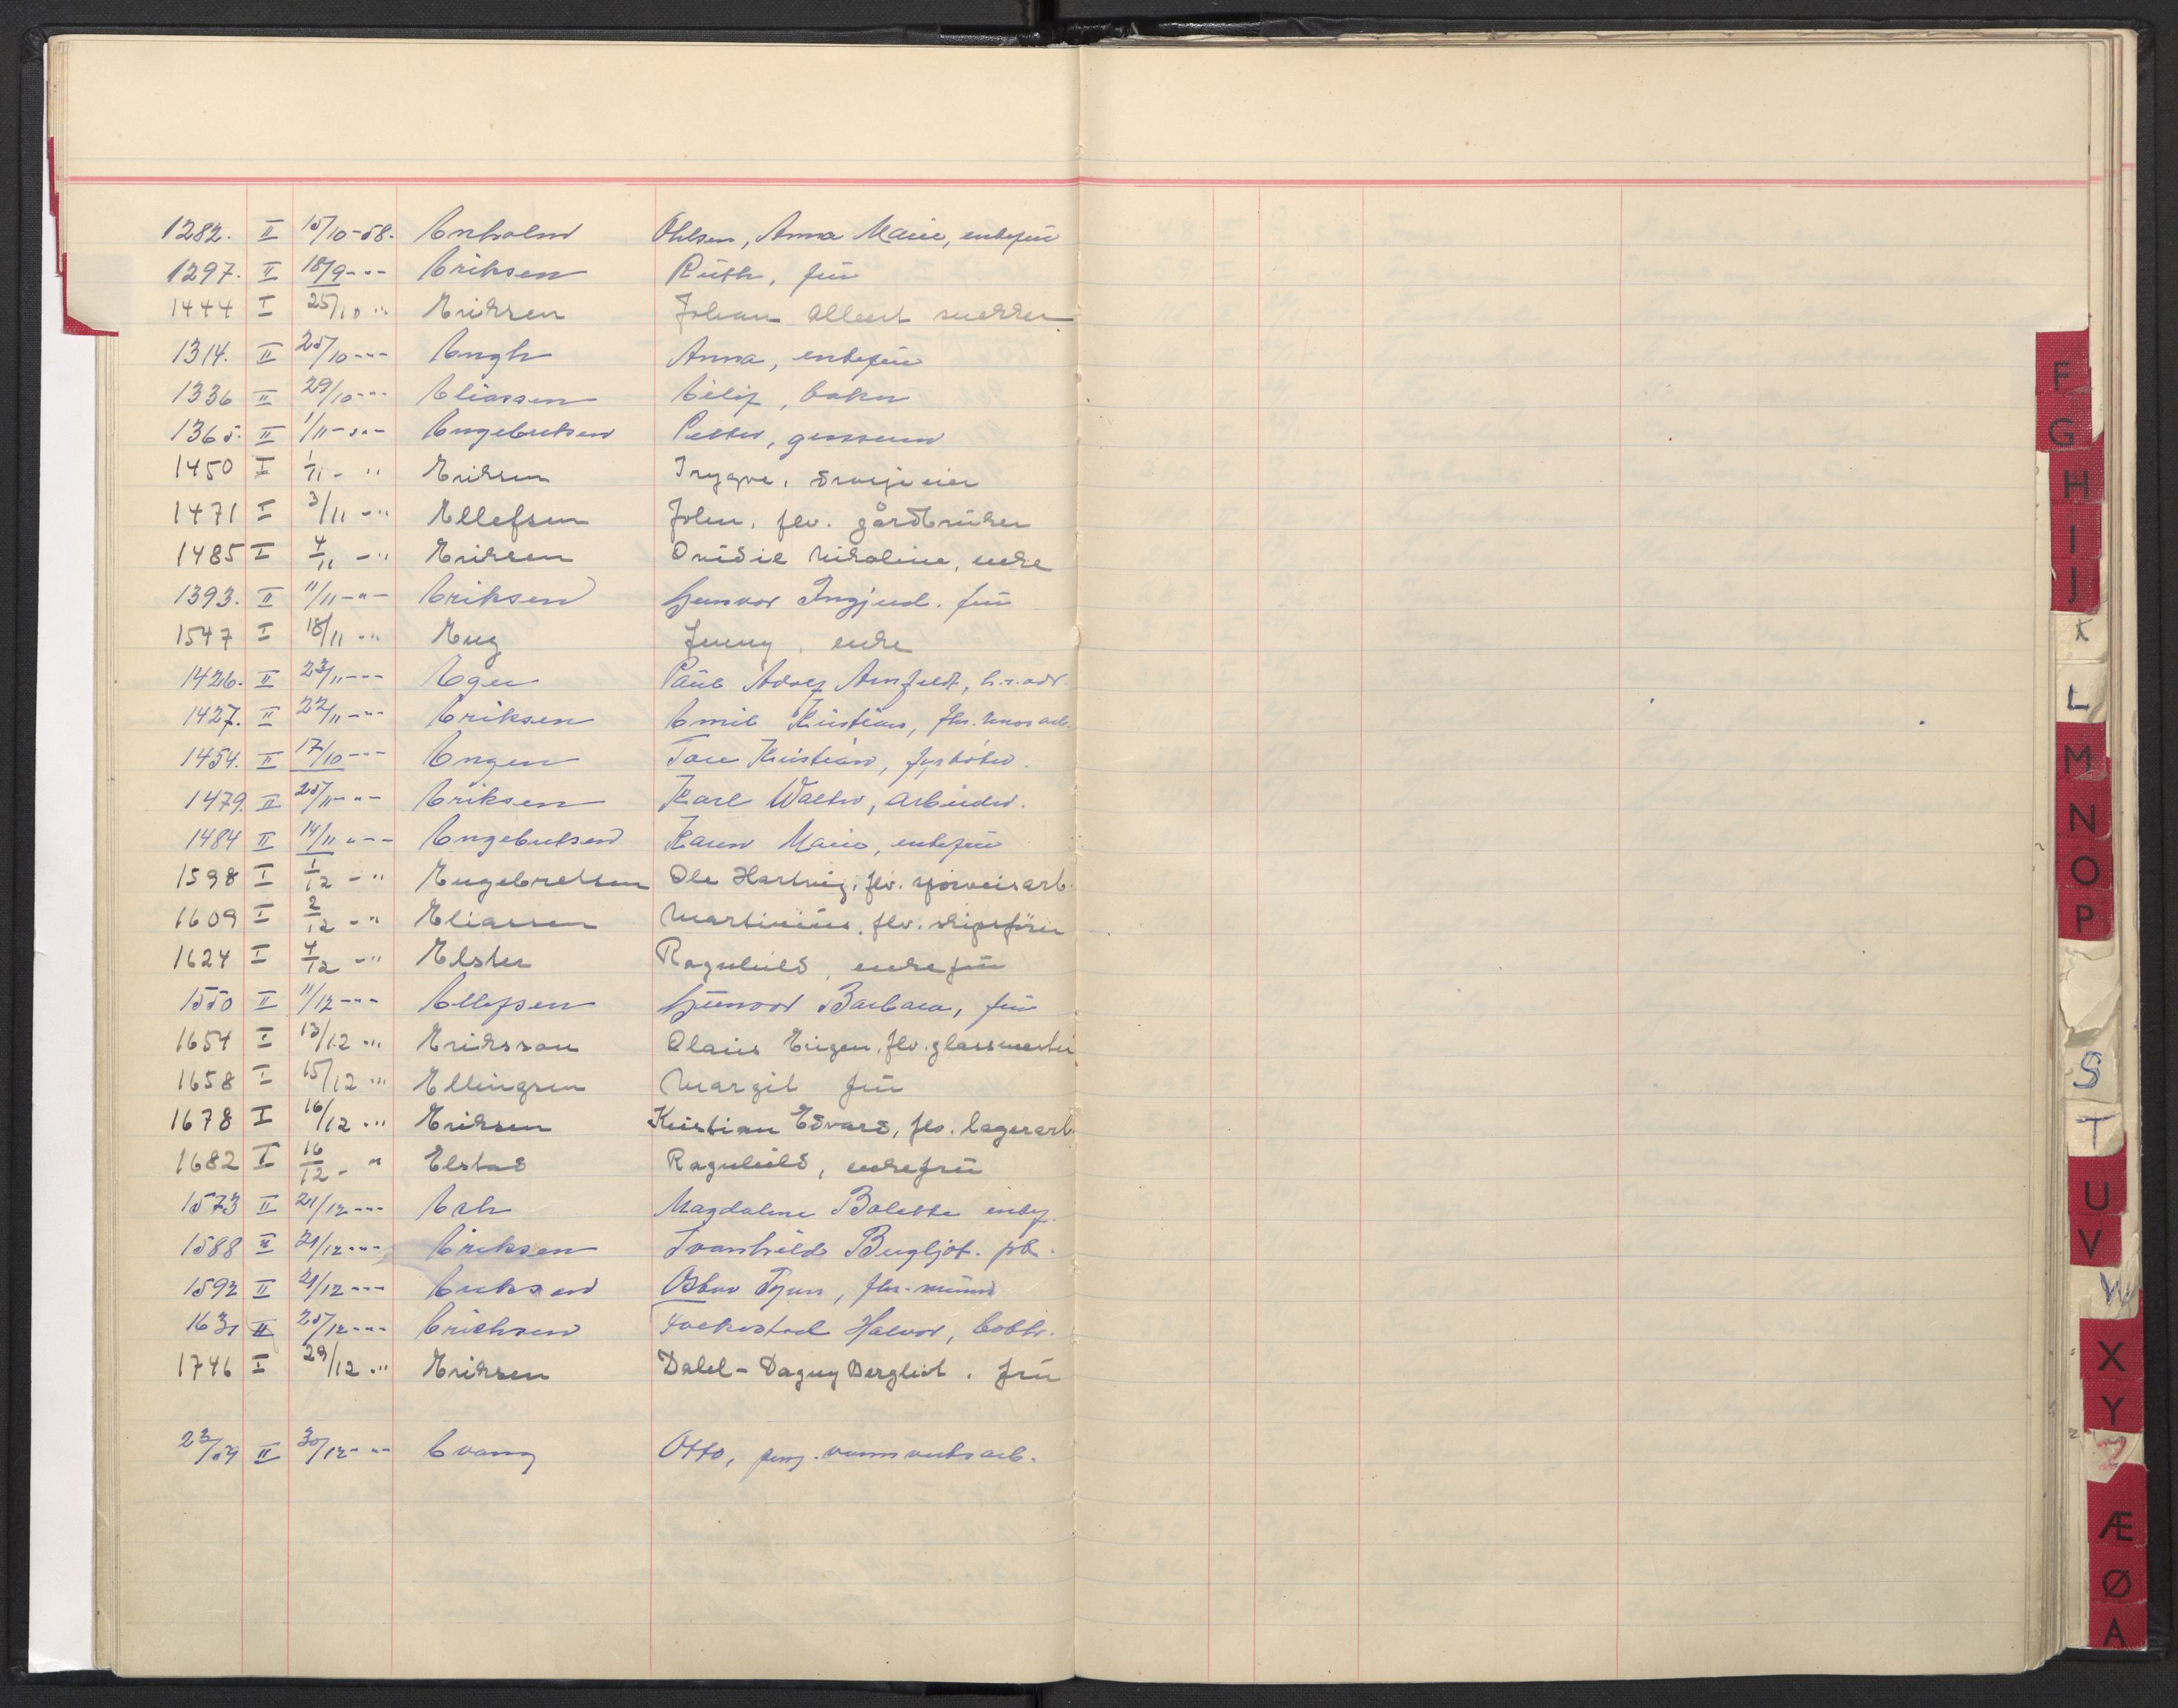 1282. II 15/10-58. Enholm Ohlsen, Anna Marie, enkefrü
1297. II 18/9 - " - Eriksen Ruth, frü
1444 I 25/10 " Eriksen Johan Albert snekker
1314. II 25/10 - " - Engh Anna, enkefrü
1336 II 29/10 - " - Eliassen Eilif, baker
1365. II 1/11 - " - Engebretsen Petter,
1450 I 1/11 - " Eriksen Trygve, drosjeeier
1471 I 3/11 - " Ellefsen John, flv. gårdbrüker
1485 I 4/11 - " Eriksen Ovidie Nikoline, enke
1393. II 11/11 - " - Eriksen Gunvor Ingjerd. frü
1547 I 18/11 - " Eng Jenny, enke
1426. II 23/11 - " - Eger Paul Adolf Arnfeldt, h.r.adv.
1427. II 22/11 - " - Eriksen Emil Kristian, fhv.
1454. II 17/10 - " - Engen Tore Kristian, fyrbøter.
1479. II 25/11 - " - Eriksen Karl Walter, arbeider.
1484 II 14/11 - " - Engebretsen Karen Marie, enkefrü
1598 I 1/12 - " Engebretsen Ole Hartvig, flv. sporveisarb.
1609 I 2/12 - " Eliassen Martinius, flv. skipsfører
1624 I 4/12 - " Elster Ragnhild, enkefrü
1550 II 11/12 - " - Ellefsen Gunvor Barbara, frü
1654 I 13/12 - " Eriksson Olaus Eugen, flv. glassmester
1658 I 15/12 - " Ellingsen Margit frü
1678 I 16/12 - " Eriksen Kristian Edvard, flv. lagerarb.
1682 I 16/12 - " Elstad Ragnhild, enkefrü
1573 II 21/12 - " - Esh Magdalene Bolette enkef.
1588 II 21/12 - " - Eriksen Svanhild Bergljot. frk.
1592 II 21/12 - " - Eriksen Osker Tyun, fhv.
1631 II 25/12 - " - Erichsen Halvor, bokh.
1746 I 29/12 - " Eriksen Dahl-Dagny Bergliot, frü
23/59 II 30/12 - " - Evang Otto, pens. vannverksarb.
F
G
H
I
J
K
L
M
N
O
P
S
T
U
V
W
X
Y
Z
Æ
Ø
A